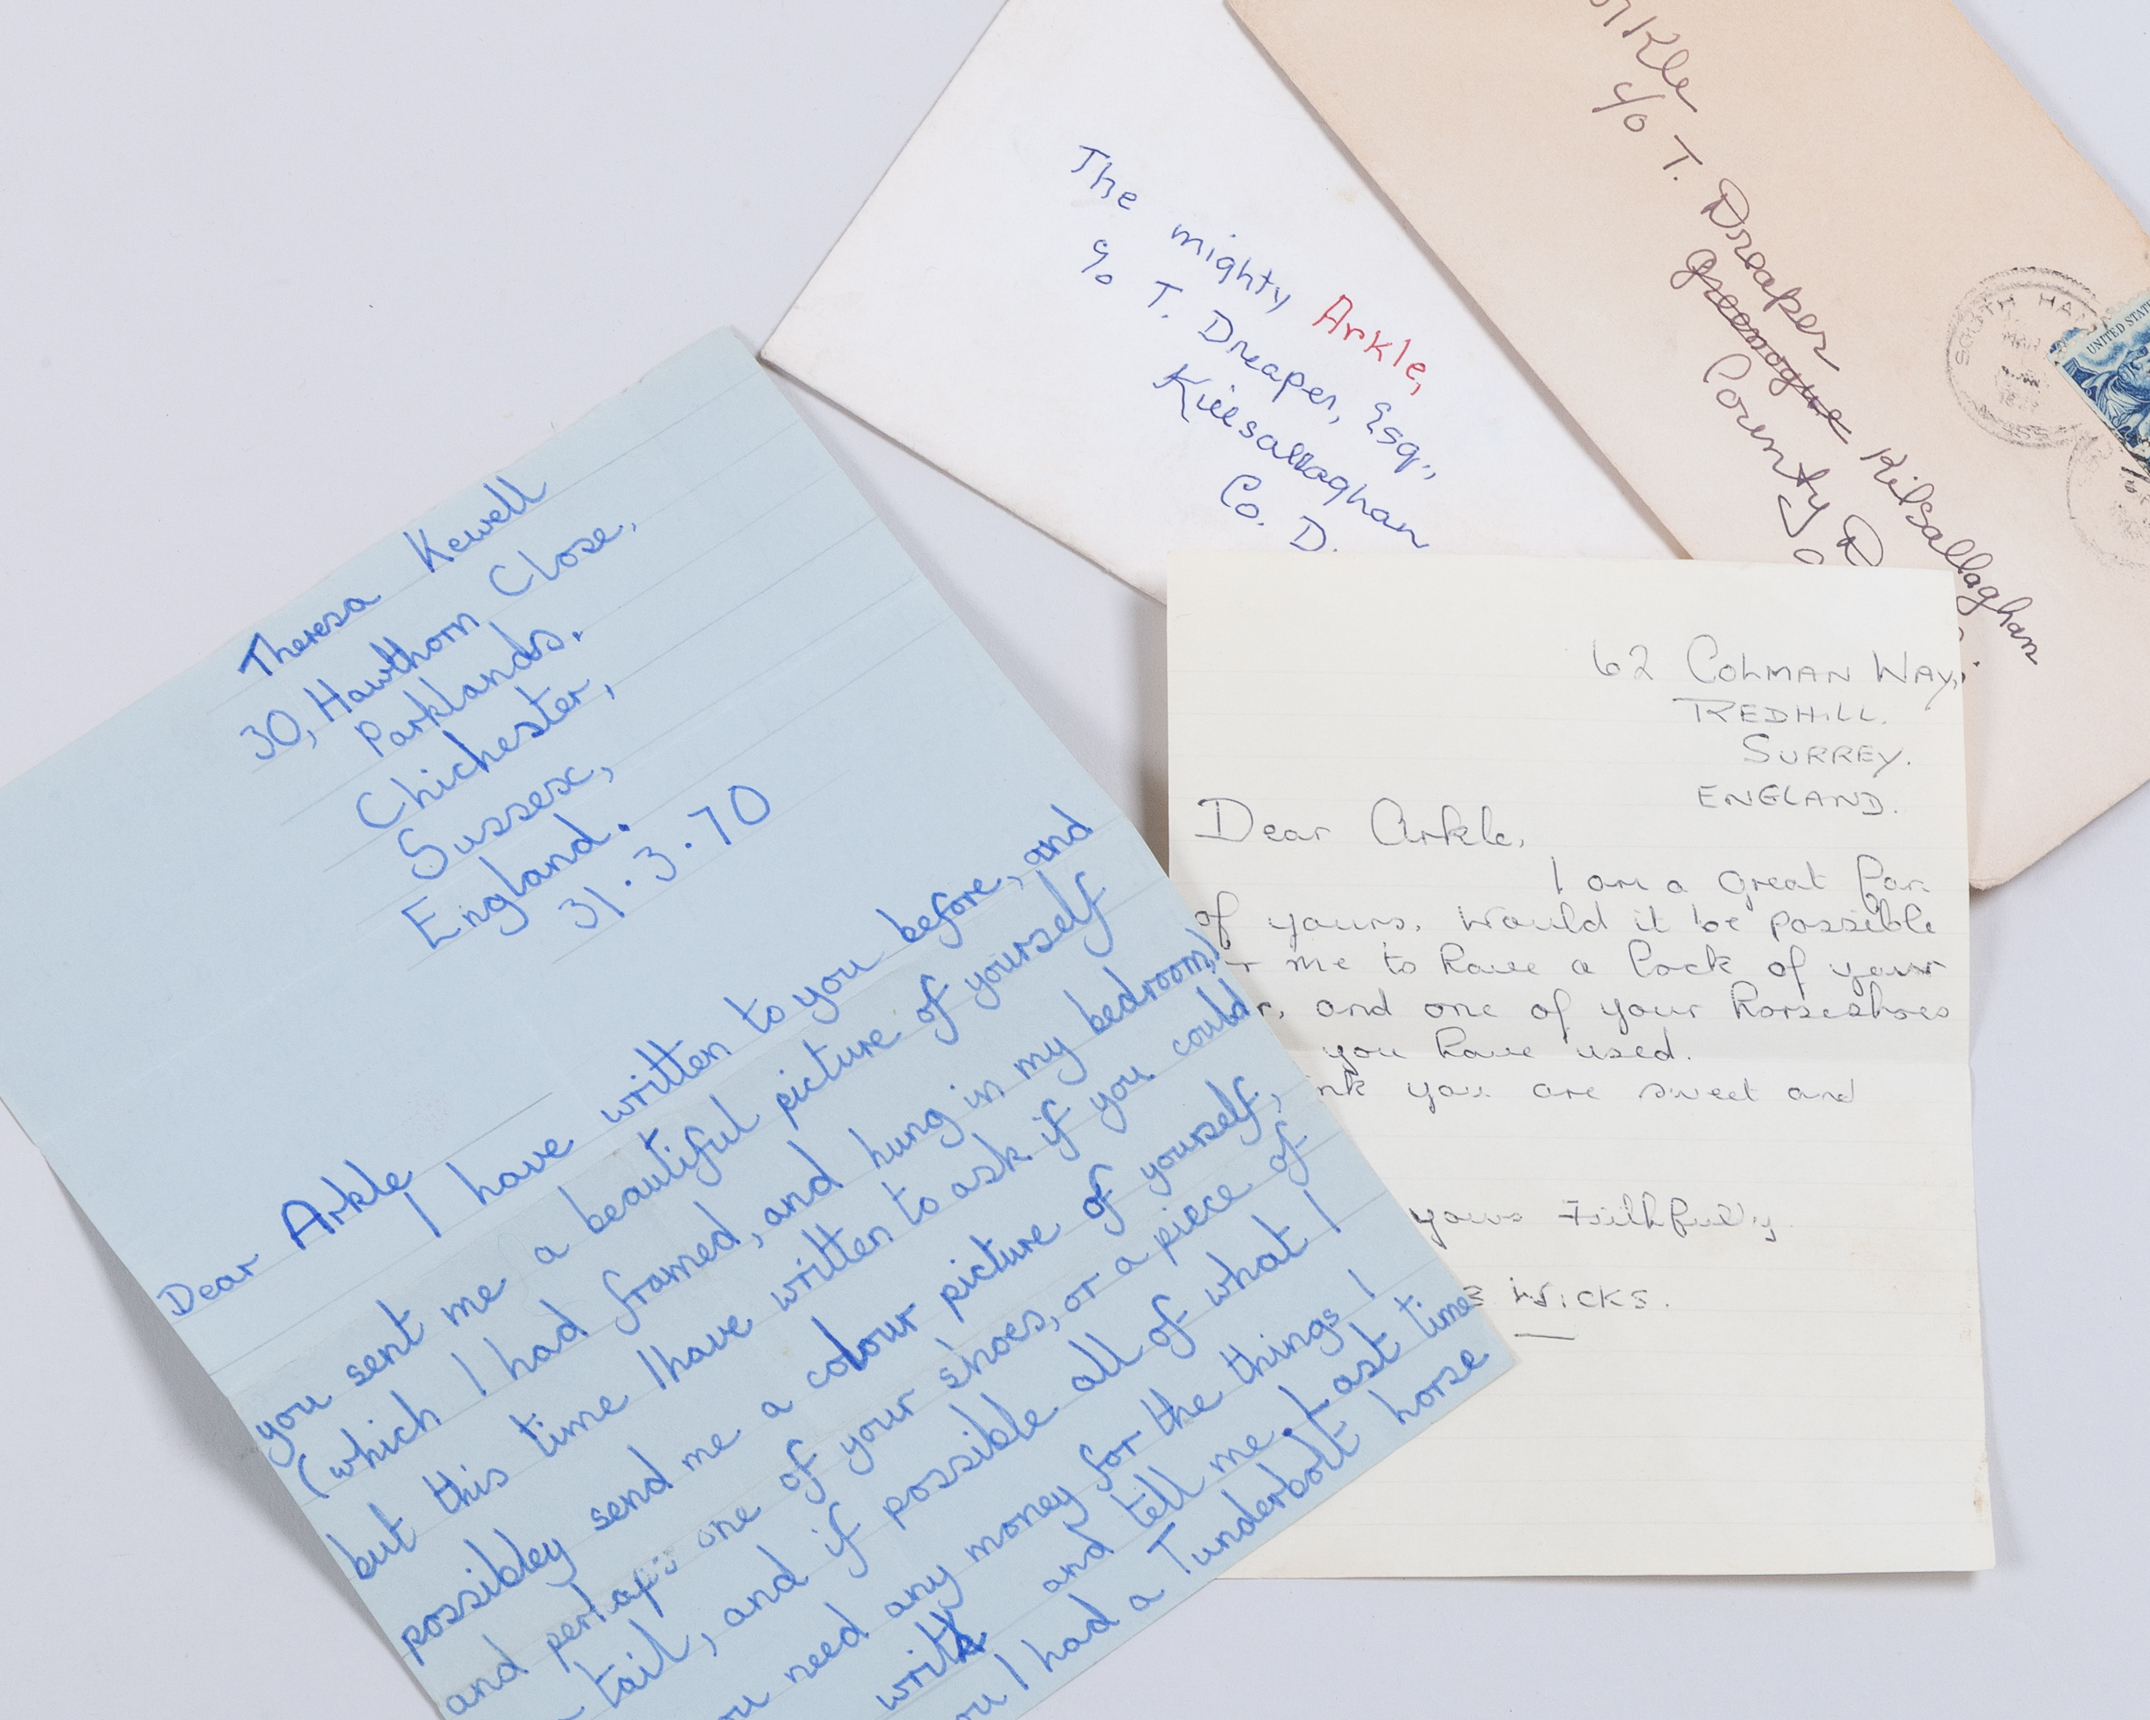 The mighty Arkle,
c/o T. Dreaper, Esq.,
Killsallaghan
Co. D.
Arkle
c/o T. Dreaper
Greenogue Kilsallaghan
County D
SOUTH HA
UNITED STAT
Theresa Kewell
30, Hawthorn Close,
Parklands.
Chichester,
Sussex,
England.
31.3.70
Dear Arkle
I have written to you before, and
you sent me a beautiful picture of yourself
(which I had framed, and hung in my bedroom)
but this time I have written to ask if you could
possibley send me a colour picture of yourself,
and perhaps one of your shoes, or a piece of
tail, and if possible all of what I
need any money for the things I
write and tell me. Last time
I had a Tunderbolt horse
62 COLMAN WAY,
REDHILL.
SURREY.
ENGLAND.
Dear Arkle,
I am a great fan
of yours. Would it be possible
me to have a lock of your
and one of your horseshoes
you have used.
you are sweet and
yours Faithfully
WICKS.